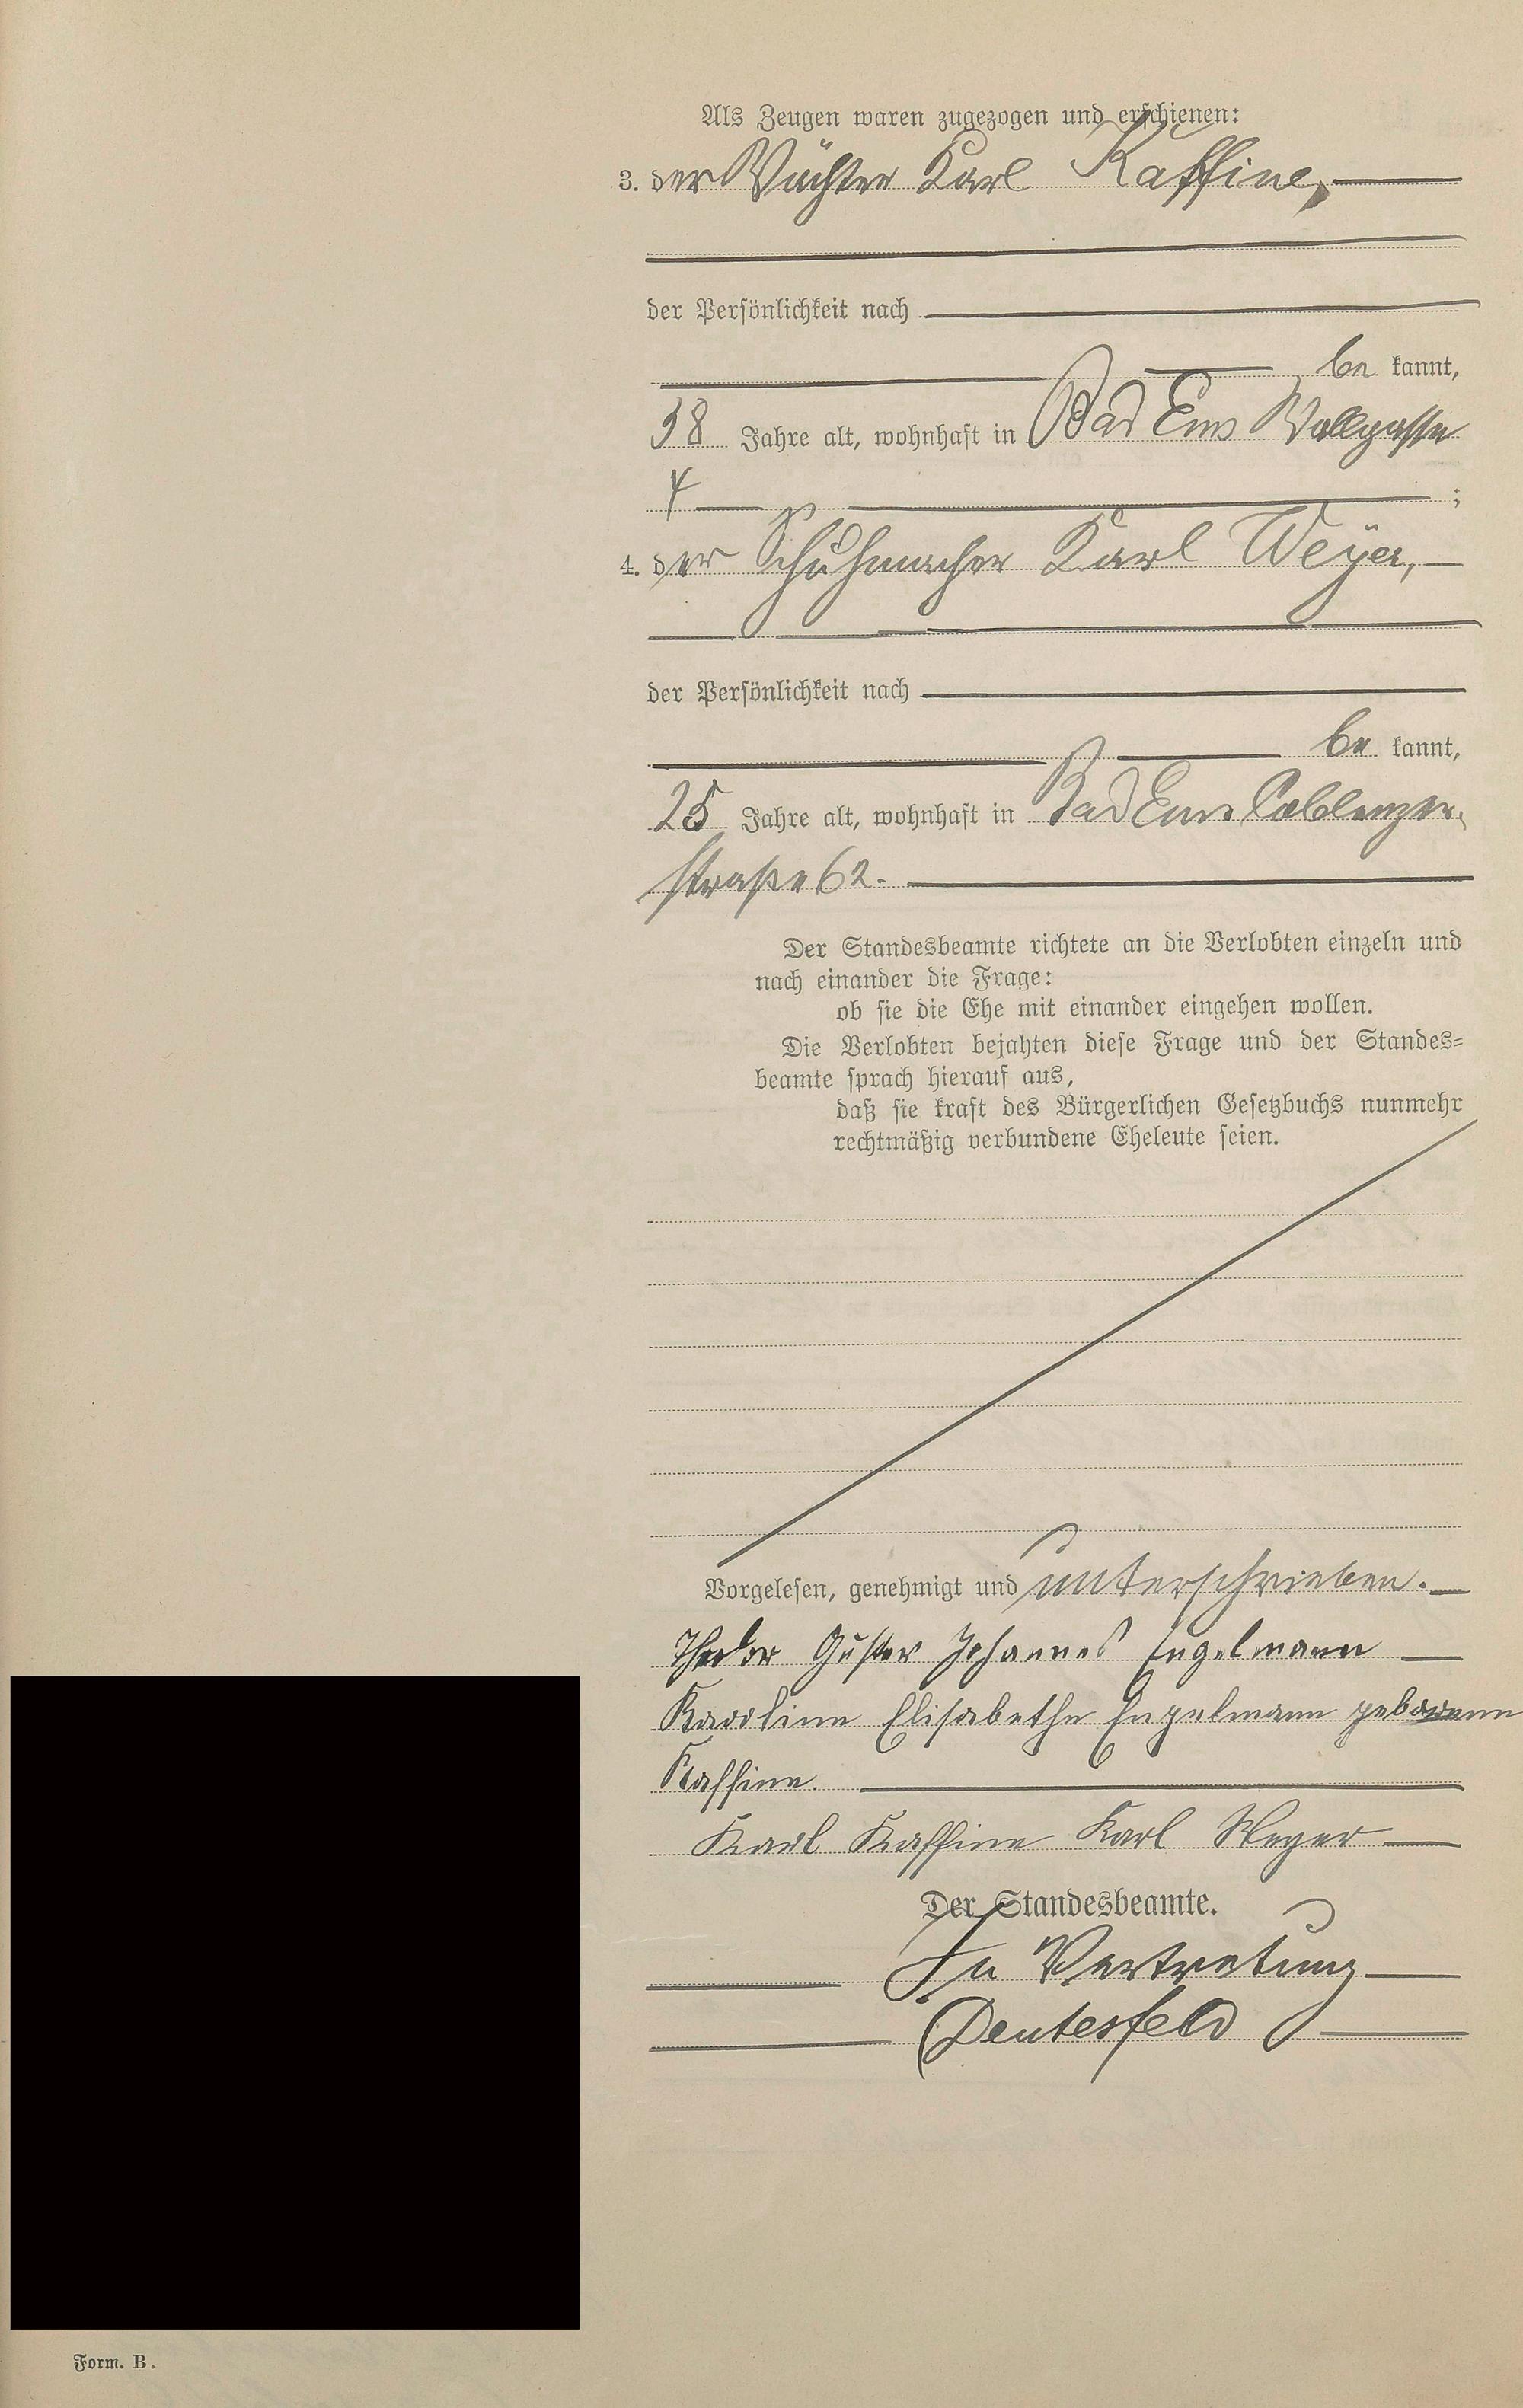 Als Zeugen waren zugezogen und erschienen:
3. der Wächter Karl Kaffine,
der Persönlichkeit nach
be kannt,
38 Jahre alt, wohnhaft in Bad Ems Wallgasse
4 ;
4. der Schuhmacher Karl Weyer,
der Persönlichkeit nach
be kannt,
25 Jahre alt, wohnhaft in Bad Ems Coblenzer-
straße 62.
Der Standesbeamte richtete an die Verlobten einzeln und
nach einander die Frage:
ob sie die Ehe mit einander eingehen wollen.
Die Verlobten bejahten diese Frage und der Standes=
beamte sprach hierauf aus,
daß sie kraft des Bürgerlichen Gesetzbuchs nunmehr
rechtmäßig verbundene Eheleute seien.
Vorgelesen, genehmigt und unterschrieben.
Theodor Gustav Johannes Engelmann
Karoline Elisabethe Engelmann geborene
Kaffine.
Karl Kaffine Karl Weyer
Der Standesbeamte.
In Vertretung
Deutesfeld
Form. B.